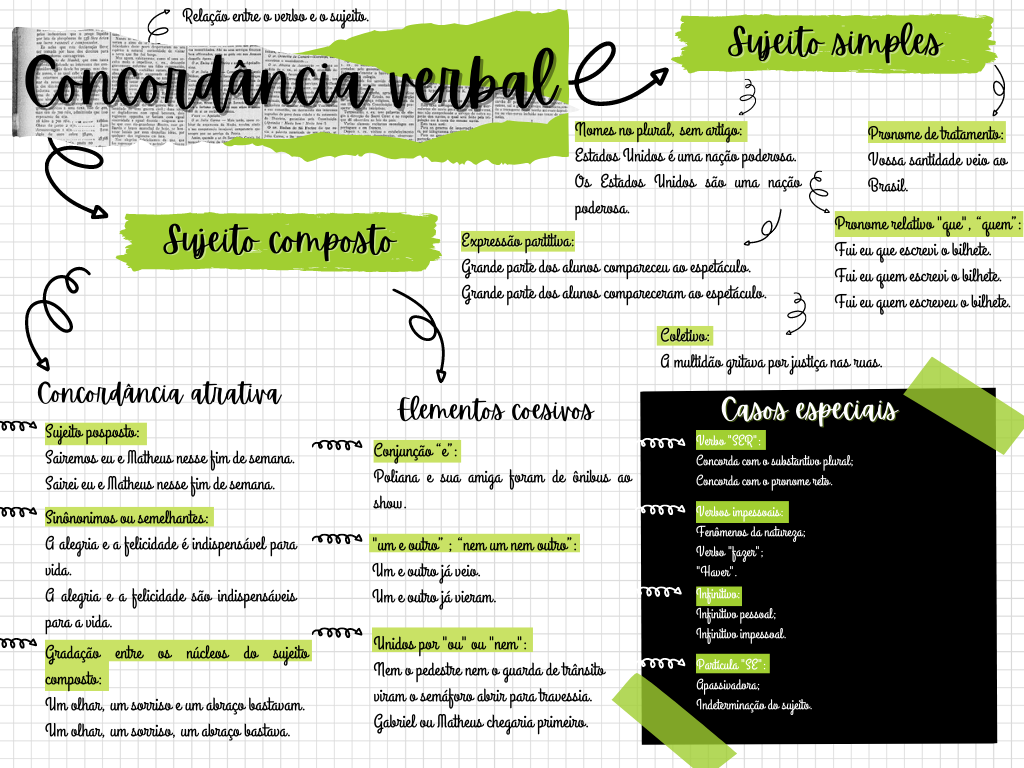 Relação entre o verbo e o sujeito.
Concordância verbal
Sujeito simples
Nomes no plural, sem artigo:
Estados Unidos é uma nação poderosa.
Os Estados Unidos são uma nação
poderosa.
Pronome de tratamento:
Vossa santidade veio ao
Brasil.
Pronome relativo "que", “quem”:
Fui eu que escrevi o bilhete.
Fui eu quem escrevi o bilhete.
Fui eu quem escreveu o bilhete.
Expressão partitiva:
Grande parte dos alunos compareceu ao espetáculo.
Grande parte dos alunos compareceram ao espetáculo.
Coletivo:
A multidão gritava por justiça nas ruas.
Sujeito composto
Concordância atrativa
Sujeito posposto:
Sairemos eu e Matheus nesse fim de semana.
Sairei eu e Matheus nesse fim de semana.
Sinônonimos ou semelhantes:
A alegria e a felicidade é indispensável para
vida.
A alegria e a felicidade são indispensáveis
para a vida.
Gradação entre os núcleos do sujeito
composto:
Um olhar, um sorriso e um abraço bastavam.
Um olhar, um sorriso, um abraço bastava.
Elementos coesivos
Conjunção “e”:
Poliana e sua amiga foram de ônibus ao
show.
"um e outro” ; “nem um nem outro”:
Um e outro já veio.
Um e outro já vieram.
Unidos por "ou" ou "nem":
Nem o pedestre nem o guarda de trânsito
viram o semáforo abrir para travessia.
Gabriel ou Matheus chegaria primeiro.
Casos especiais
Verbo "SER":
Concorda com o substantivo plural;
Concorda com o pronome reto.
Verbos impessoais:
Fenômenos da natureza;
Verbo "fazer";
"Haver".
Infinitivo:
Infinitivo pessoal;
Infinitivo impessoal.
Partícula "SE":
Apassivadora;
Indeterminação do sujeito.